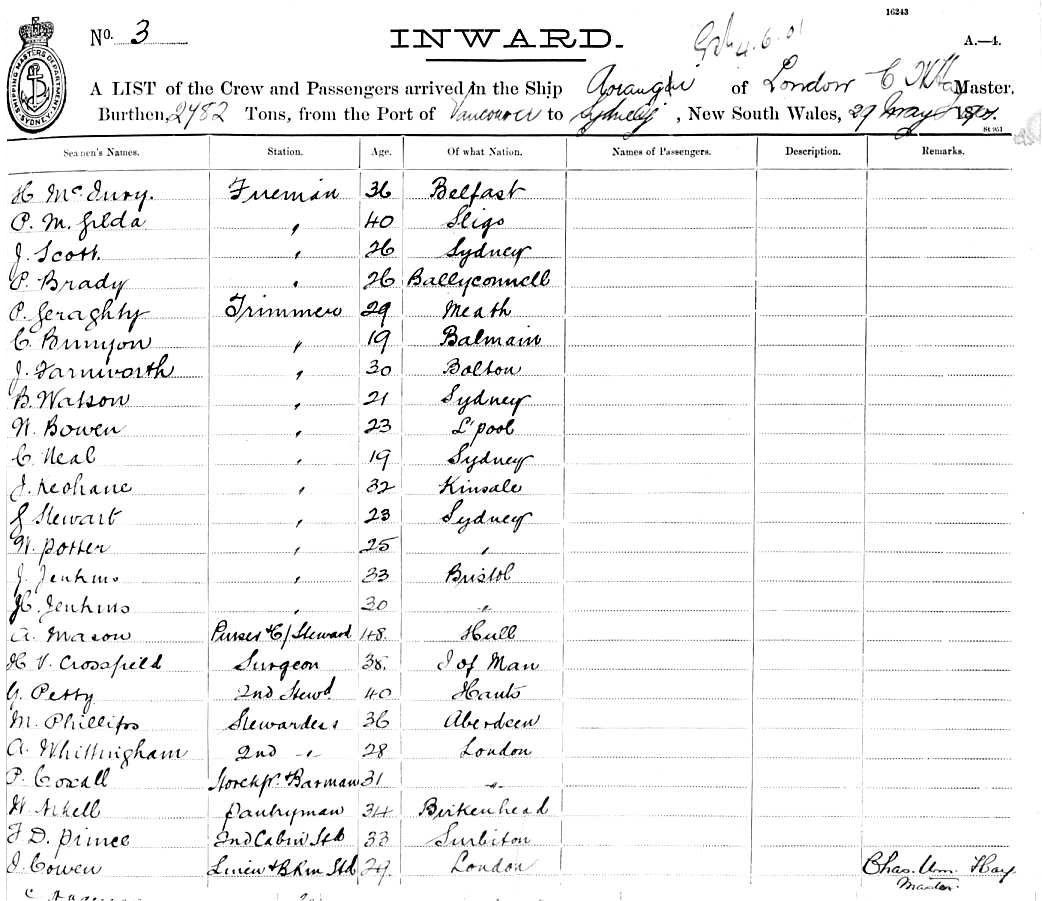 16243
No. 3 INWARD. 4.6.01 A.—4.
A LIST of the Crew and Passengers arrived in the Ship Aorangi of London C W Hay Master,
Burthen, 2782 Tons, from the Port of Vancouver to Sydney, New South Wales, 29 May
St 951
SHIPPING MASTERS DEPARTMENT SYDNEY
Seamen's Names. Station. Age. Of what Nation. Names of Passengers. Description. Remarks.
H McIury. Fireman 36 Belfast
P. M. Gilda " 40 Sligo
J. Scott. " 26 Sydney
P. Brady " 26 Ballyconnell
P. Geraghty Trimmer 29 Meath
C. Bunyon " 19 Balmain
J. Farnworth " 30 Bolton
B. Watson " 21 Sydney
W. Bowen " 23 L'pool
C. Neal " 19 Sydney
J. Keohane " 32 Kinsale
G Stewart " 23 Sydney
W. Potter " 25 "
J. Jenkins " 33 Bristol
H. Jenkins " 30 "
A. Mason Purser & C/Steward 48. Hull
H V. Crossfield Surgeon 38. I of Man
G. Petty 2nd Stewd 40 Hants
M. Phillips Stewardess 36 Aberdeen
A. Whittingham 2nd " 28 London
P. Coxall Storekpr. & Barman 31 "
W. Arkell Pantryman 34 Birkenhead
F D. Prince 2nd Cabin Std 33 Surbiton
J. Cowen Linen & B Rm Std 29. London Chas. Wm. Hay
Master.